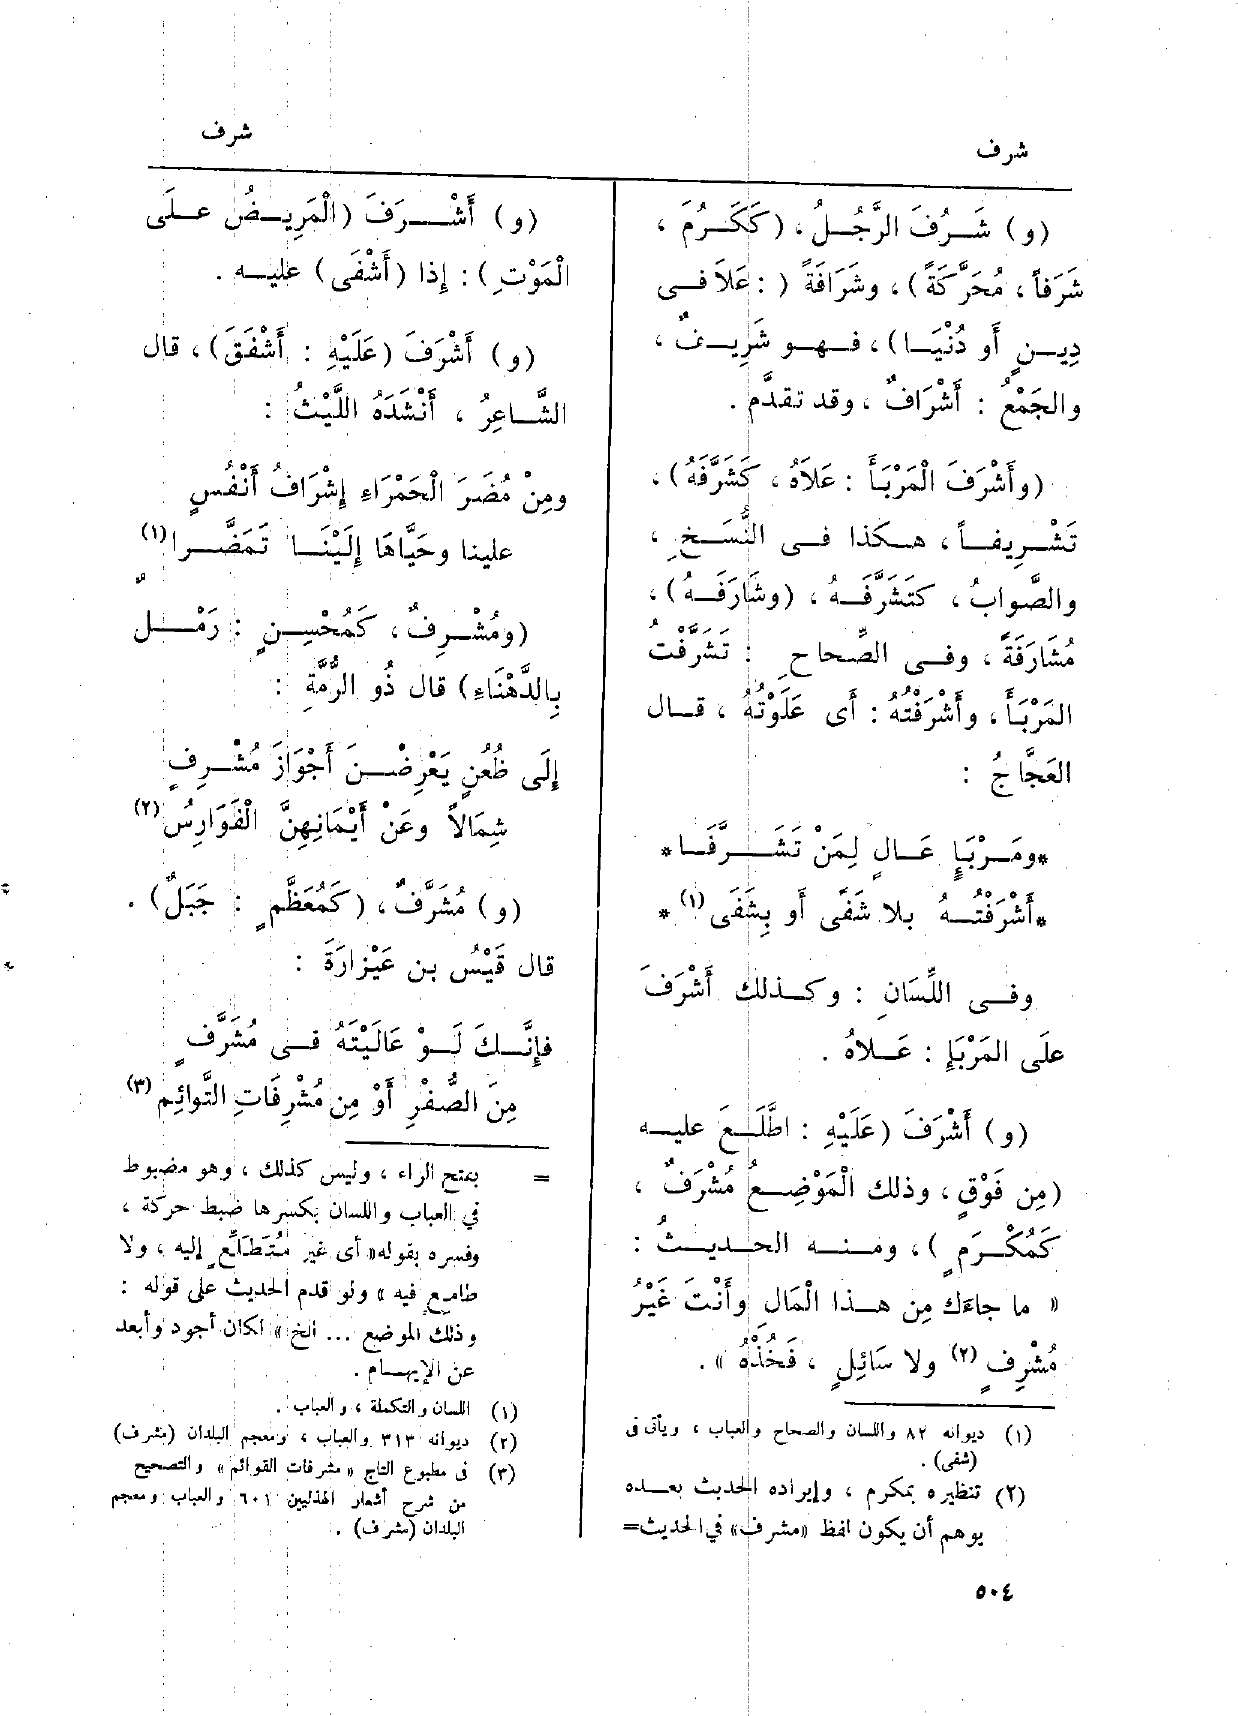 شرف
شرف
(و) شَرُفَ الرَّجُلُ، (كَكَرُمَ،
شَرَفاً، مُحَرَّكَةً)، وشَرَافَةً (: عَلاَ فى
دِينٍ أو دُنْيَا)، فهو شَرِيفٌ،
والجَمْعُ : أَشْرَافٌ، وقد تقدَّم.
(وأَشْرَفَ الْمَرْبَأَ : عَلاَهُ، كَشَرَّفَهُ)،
تَشْرِيفاً، هكذا فى النُّسَخِ،
والصَّوابُ، كتَشَرَّفَهُ، (وشَارَفَهُ)،
مُشَارَفَةً، وفى الصِّحاحِ : تَشَرَّفْتُ
المَرْبَأَ، وأَشْرَفْتُهُ : أى عَلَوْتُهُ، قال
العَجَّاجُ :
*ومَرْبَإٍ عَالٍ لِمَنْ تَشَرَّفَا*
*أَشْرَفْتُهُ بلا شَفًى أو بِشَفَى (١)*
وفى اللِّسَانِ : وكذلك أَشْرَفَ
علَى المَرْبَإِ : عَلاهُ.
(و) أَشْرَفَ (عَلَيْهِ : اطَّلَعَ عليه
(مِن فَوْقٍ، وذلك الْمَوْضِعُ مُشْرَفٌ،
كَمُكْرَمٍ)، ومنه الحديثُ :
« ما جاءَك مِن هذا الْمَالِ وأَنْتَ غَيْرُ
مُشْرِفٍ (٢) ولا سَائِلٍ، فَخُذْهُ ».
(١) ديوانه ٨٢ واللسان والصحاح والعباب، ويأتى فى
(شفى).
(٢) تنظيره بمكرم، وإيراده الحديث بعده
يوهم أن يكون لفظ «مشرف» في الحديث=
(و) أَشْرَفَ (الْمَرِيضُ علَى
الْمَوْتِ) : إذا (أَشْفَى) عليه.
(و) أَشْرَفَ (عَلَيْهِ : أَشْفَقَ)، قال
الشَّاعِرُ، أَنْشَدَهُ اللَّيْثُ :
ومِنْ مُضَرَ الْحَمْرَاءِ إِشْرَافُ أَنْفُسٍ
علينا وحَيَّاهَا إِلَيْنَا تَمَضَّرا (١)
(ومُشْرِفٌ، كَمُحْسِنٍ : رَمْلٌ
بِالدَّهْنَاءِ) قال ذُو الرُّمَّةِ :
إلَى ظُعُنٍ يَعْرِضْنَ أَجْوَازَ مُشْرِفٍ
شِمَالاً وعَنْ أَيْمَانِهِنَّ الْفَوَارِسُ (٢)
(و) مُشَرَّفٌ، (كَمُعَظَّمٍ : جَبَلٌ).
قال قَيْسُ بن عَيْزارَةَ :
فإِنَّكَ لَوْ عَالَيْتَهُ فى مُشَرَّفٍ
مِنَ الصُّفْرِ أَوْ مِن مُشْرِفَاتِ التَّوائِم (٣)
= بفتح الراء، وليس كذلك، وهو مضبوط
في العباب واللسان بكسرها ضبط حركة،
وفسره بقوله «أى غير مُتَطَلِّعٍ إليه، ولا
طامعٍ فيه» ولو قدم الحديث على قوله :
وذلك الموضع ... الخ» لكان أجود وأبعد
عن الإيهام.
(١) اللسان والتكملة، والعباب.
(٢) ديوانه ٣١٣ والعباب، ومعجم البلدان (مشرف)
(٣) فى مطبوع التاج «مشرفات القوائم» والتصحيح
من شرح أشعار الهذليين ٦٠١ والعباب ومعجم
البلدان (مشرف).
٥٠٤